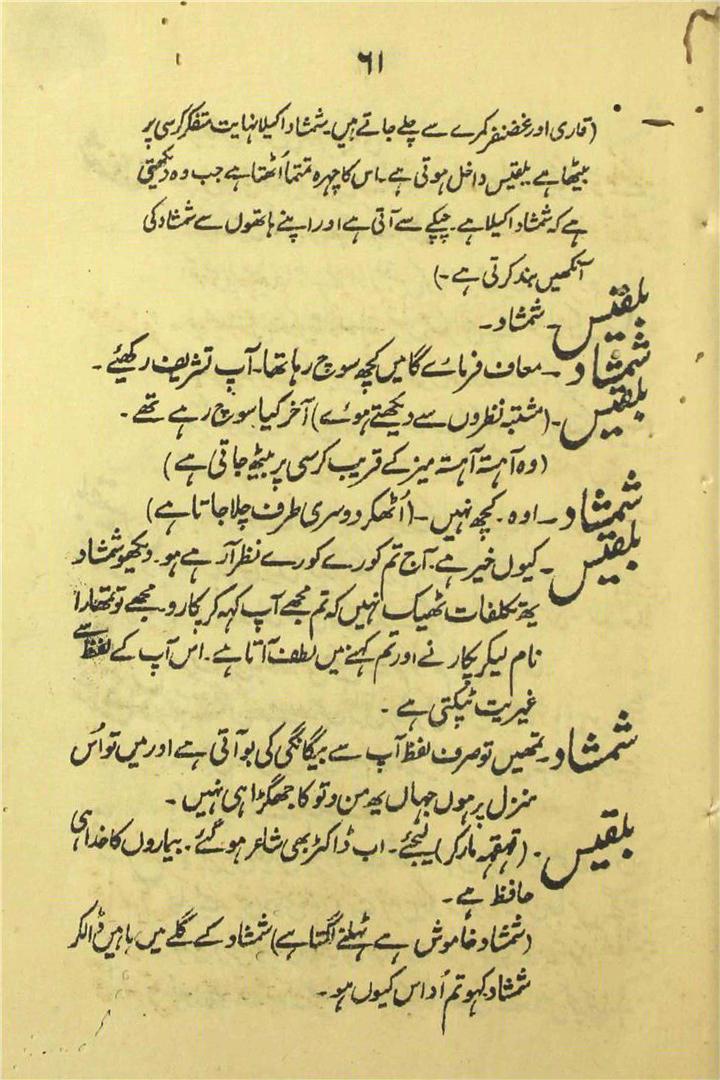 ۶۱
(قاری اور غضنفر کمرے سے چلے جاتے ہیں۔ شمشاد اکیلا نہایت متفکر کرسی پر
بیٹھا ہے بلقیس داخل ہوتی ہے۔ اس کا چہرہ تمتما اُٹھتا ہے جب وہ دیکھتی
ہے کہ شمشاد اکیلا ہے۔ چپکے سے آتی ہے اور اپنے ہاتھوں سے شمشاد کی
آنکھیں بند کرتی ہے۔)
بلقیس۔ شمشاد۔
شمشاد۔ معاف فرمائے گا میں کچھ سوچ رہا تھا۔ آپ تشریف رکھیئے۔
بلقیس۔ (مشتبہ نظروں سے دیکھتے ہوئے) آخر کیا سوچ رہے تھے۔
(وہ آہستہ آہستہ میز کے قریب کرسی پر بیٹھ جاتی ہے)
شمشاد۔ اوہ۔ کچھ نہیں۔ (اُٹھکر دوسری طرف چلا جاتا ہے)
بلقیس۔ کیوں خیر ہے۔ آج تم کورے کورے نظر آ رہے ہو۔ دیکھو شمشاد
یہ تکلفات ٹھیک نہیں کہ تم مجھے آپ کہہ کر پکارو۔ مجھے تو تمھارا
نام لیکر پکارنے اور تم کہنے میں لطف آتا ہے۔ اس آپ کے لفظ سے
غیریت ٹپکتی ہے۔
شمشاد۔ تمھیں تو صرف لفظ آپ سے بیگانگی کی بو آتی ہے اور میں تو اُس
منزل پر ہوں جہاں یہ من و تو کا جھگڑا ہی نہیں۔
بلقیس۔ (قہقہہ مار کر) لیجئے۔ اب ڈاکٹر بھی شاعر ہو گئے۔ بیماروں کا خدا ہی
حافظ ہے۔
(شمشاد خاموش ہے ٹہلنے لگتا ہے) شمشاد کے گلے میں باہیں ڈالکر
شمشاد کہو تم اُداس کیوں ہو۔